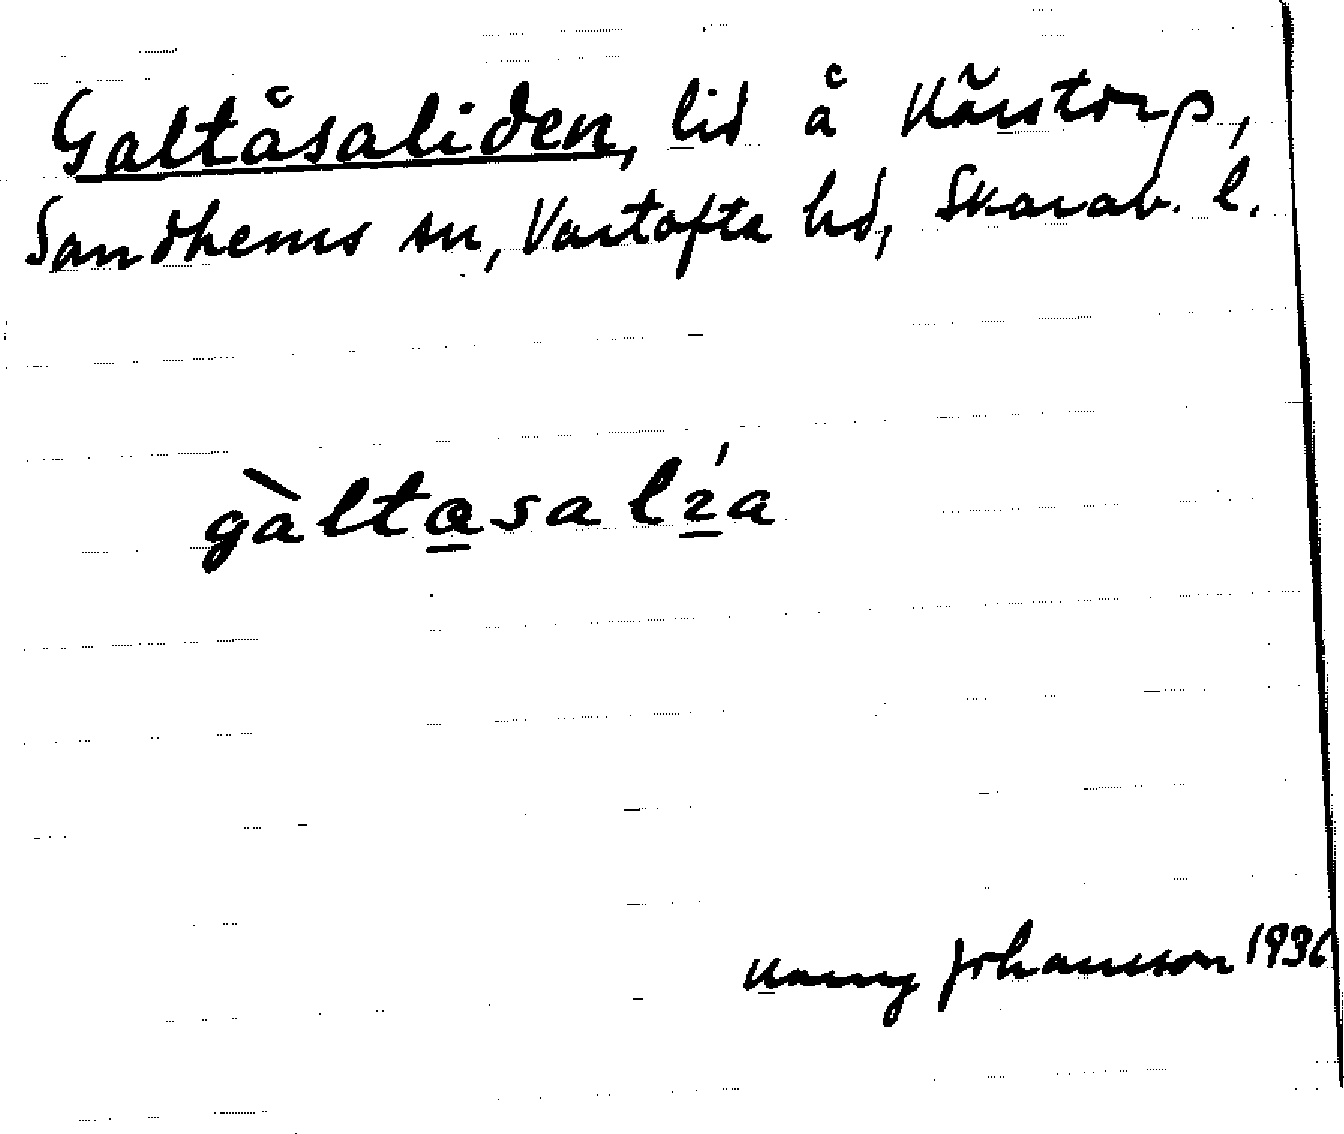 Galtåsaliden, lid å Kårstorp,
Sandhems sn, Vartofta hd, Skarab. l.
gàltasalía
Johansson 1936